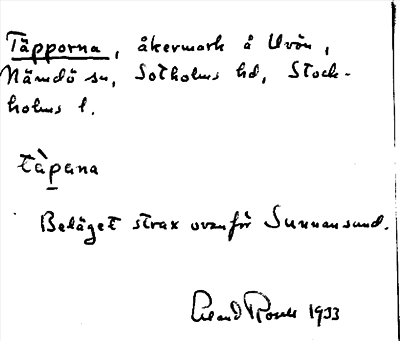 Täpporna, åkermark å Uvön,
Nämdö sn, Sotholms hd, Stock-
holms l.
tàpəna
Beläget strax ovanför Sunnansund.
1933